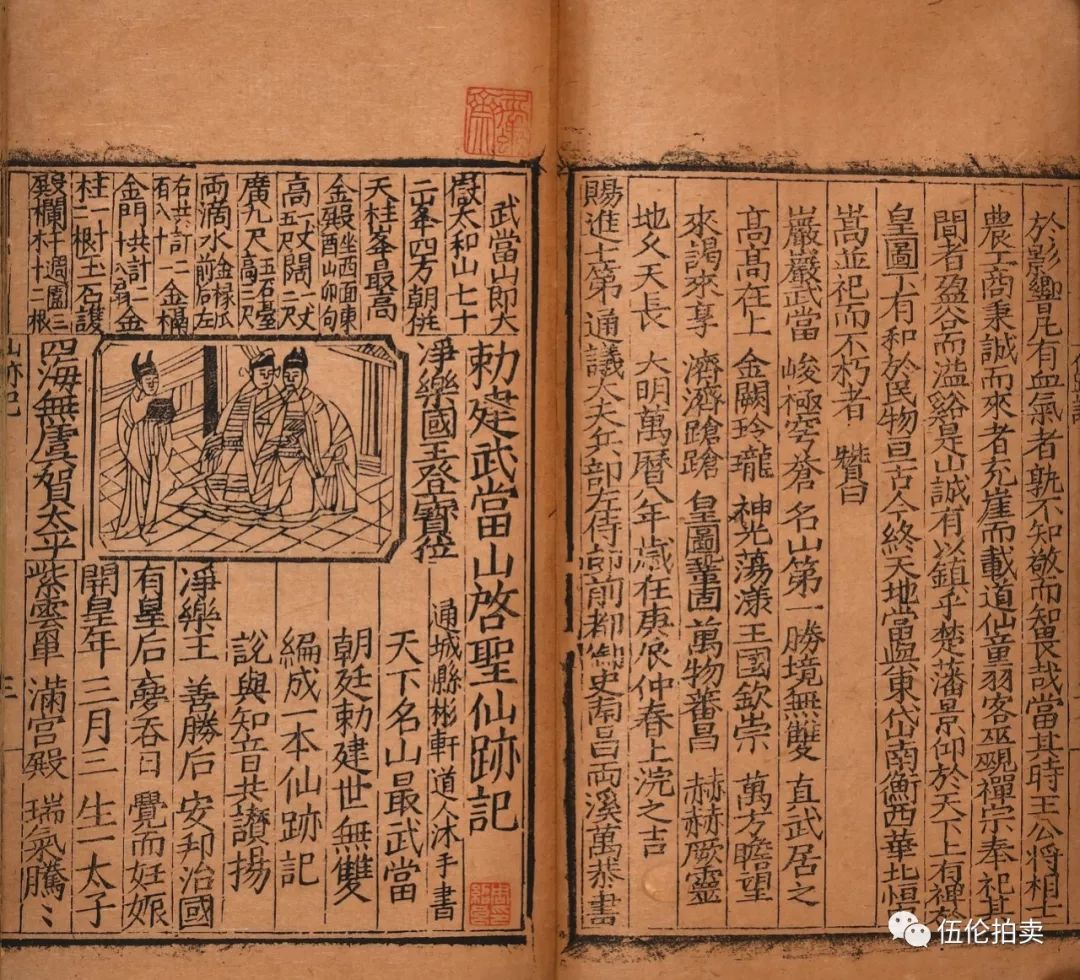 於影響凡有血氣者孰不知敬而知畏哉當其時王公將相士
農工商秉誠而來者充崖而載道仙童羽客巫覡禪宗奉祀其
間者盈谷而溢谿是山誠有以鎮乎楚藩景仰於天下上有裨於
皇圖下有和於民物亘古今終天地當與東岱南衡西華北恒
嵩並祀而不朽者 贊曰
巖巖武當 峻極穹蒼 名山第一 勝境無雙 真武居之
高高在上 金闕玲瓏 神光蕩漾 王國欽崇 萬方瞻望
來謁來享 濟濟蹌蹌 皇圖鞏固 萬物蕃昌 赫赫厥靈
地久天長 大明萬曆八年歲在庚辰仲春上浣之吉
賜進士第通議大夫兵部左侍郎前都御史南昌両溪萬恭書
武當山即大
嶽太和山七十
二峯四方朝
天柱峯最高
金殿坐西面東
酉山卯向
高一丈闊一丈
五尺二尺
廣九尺五石臺
高三尺
両滴水金椽瓜
前后左
右共計二金槅
百八十
金門共計二金
十八扇
柱一十二根玉石護
殿欄干週圍三
木十二根
勅建武當山啓聖仙跡記
淨樂國王登寶位
四海無虞賀太平
通城縣彬軒道人沐手書
天下名山最武當
朝廷勅建世無雙
編成一本仙跡記
說與知音共讚揚
淨樂王 善勝后 安邦治國
有皇后 夢吞日 覺而妊娠
開皇年 三月三 生一太子
紫雲罩 滿宮殿 瑞氣騰〻
山跡記
三
伍伦拍卖